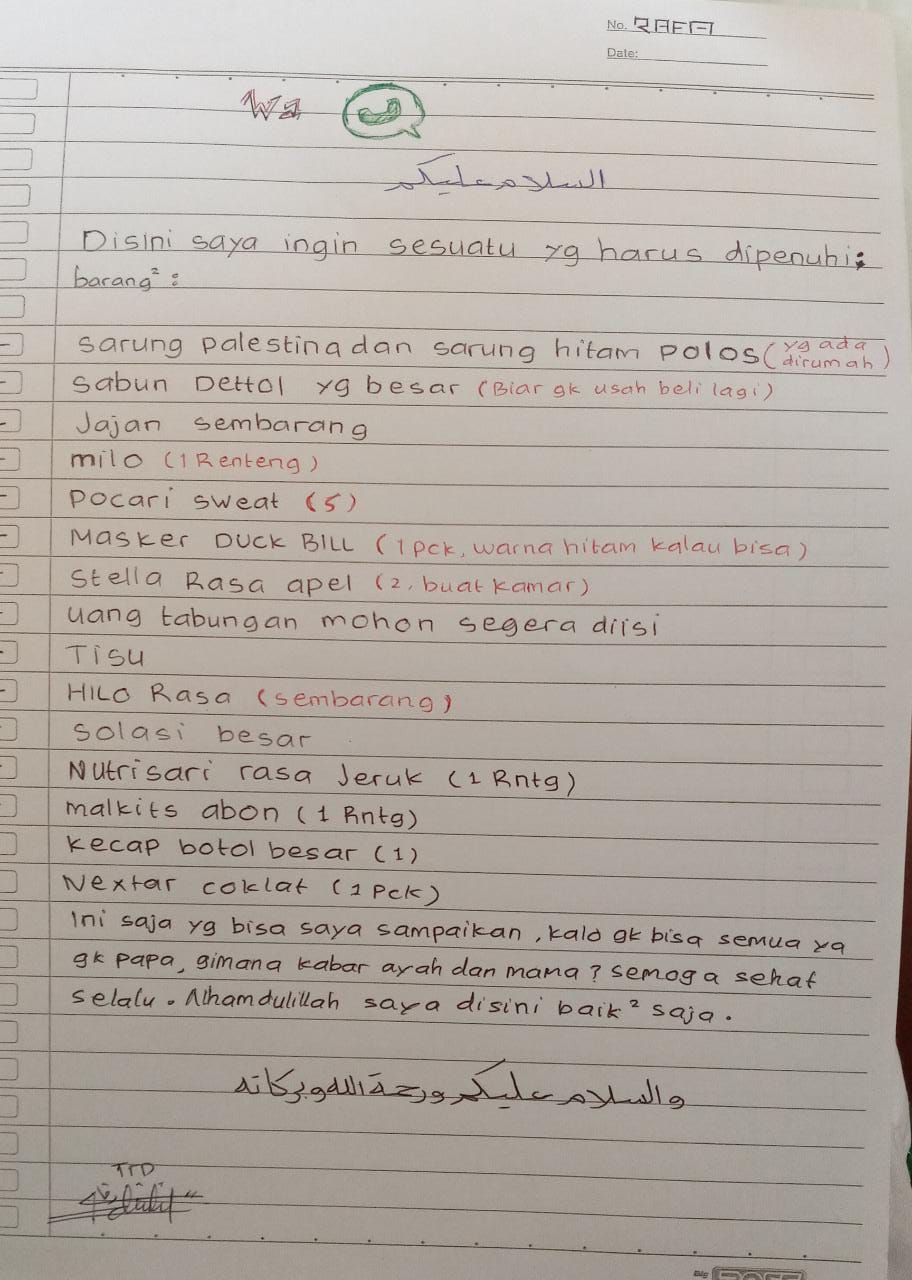 No. RAFA
Date:
Wa
السلام عليكم
Disini saya ingin sesuatu yg harus dipenuhi:
barang² :
sarung palestina dan sarung hitam polos (yg ada dirumah)
Sabun Dettol yg besar (Biar gk usah beli lagi)
Jajan sembarang
milo (1 Renteng)
Pocari sweat (5)
Masker DUCK BILL (1 pck, warna hitam kalau bisa)
Stella Rasa apel (2, buat kamar)
uang tabungan mohon segera diisi
Tisu
HILO Rasa (sembarang)
solasi besar
Nutrisari rasa Jeruk (1 Rntg)
malkits abon (1 Rntg)
kecap botol besar (1)
Nextar coklat (1 Pck)
Ini saja yg bisa saya sampaikan, kalo gk bisa semua ya
gk papa, gimana kabar ayah dan mama? semoga sehat
selalu. Alhamdulillah saya disini baik² saja.
والسلام عليكم ورحمة الله وبركاته
TTD
Big